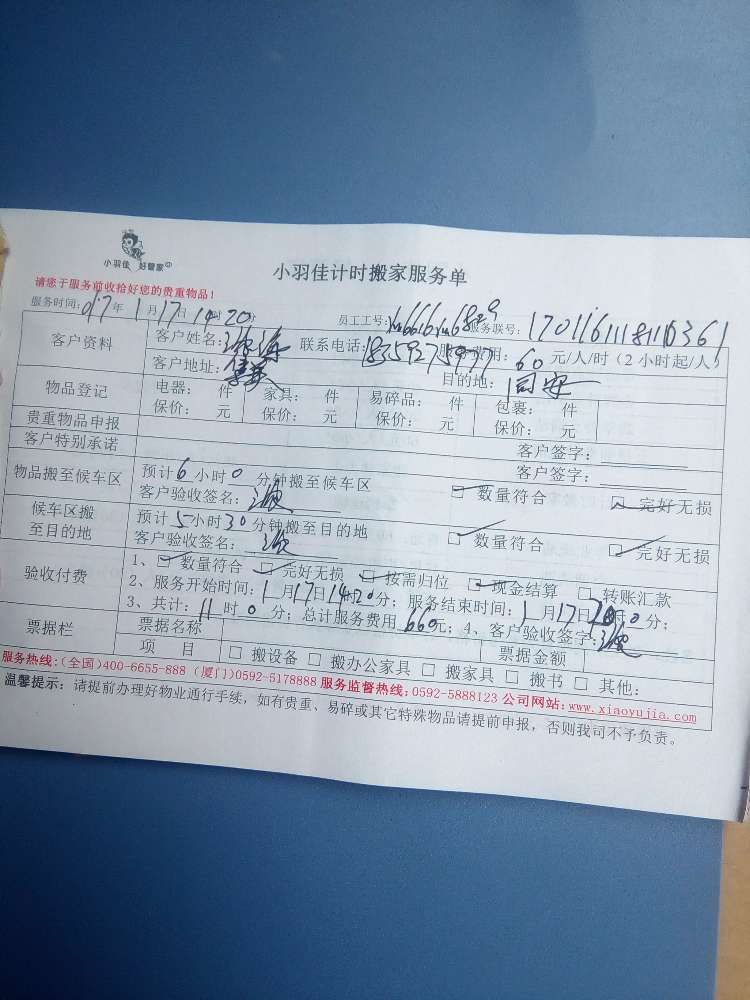 小羽佳 好管家
小羽佳计时搬家服务单
请您于服务前收拾好您的贵重物品！
服务时间：017年1月17日14时20分 员工工号： 服务联号：
客户资料 客户姓名： 联系电话：18359275977 服务费用：60元/人/时（2小时起/人）
客户地址：集美 目的地：同安
物品登记 电器： 件 家具： 件 易碎品： 件 包裹： 件
保价： 元 保价： 元 保价： 元 保价： 元
贵重物品申报 客户签字：
客户特别承诺 客户签字：
物品搬至候车区 预计6小时0分钟搬至候车区
客户验收签名： ☑ 数量符合 ☑ 完好无损
候车区搬至目的地 预计5小时30分钟搬至目的地
客户验收签名： ☑ 数量符合 ☑ 完好无损
验收付费 1、☑ 数量符合 ☑ 完好无损 ☑ 按需归位 ☑ 现金结算 □ 转账汇款
2、服务开始时间：1月17日14时20分；服务结束时间：1月17日 时0分；
3、共计：11时0分；总计服务费用660元；4、客户验收签字：
票据栏 票据名称 票据金额
项 目 □ 搬设备 □ 搬办公家具 □ 搬家具 □ 搬书 □ 其他：
服务热线：(全国)400-6655-888 (厦门)0592-5178888 服务监督热线：0592-5888123 公司网站：www.xiaoyujia.com
温馨提示：请提前办理好物业通行手续，如有贵重、易碎或其它特殊物品请提前申报，否则我司不予负责。